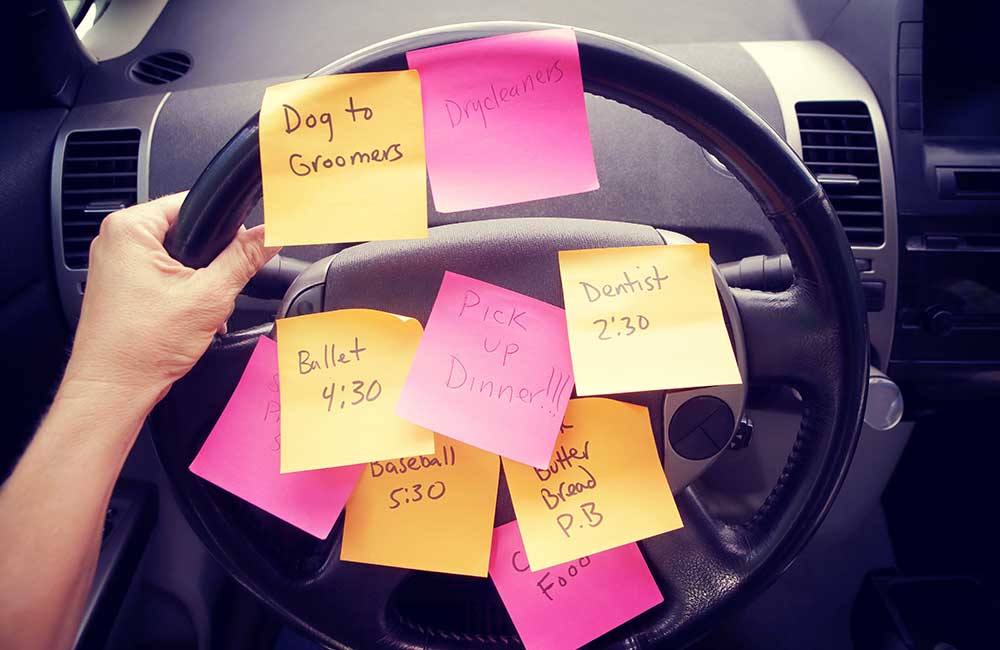 Dog to
Groomers
Drycleaners
Dentist
2:30
Pick
up
Dinner!!!
Ballet
4:30
Baseball
5:30
Butter
Bread
P.B
Food